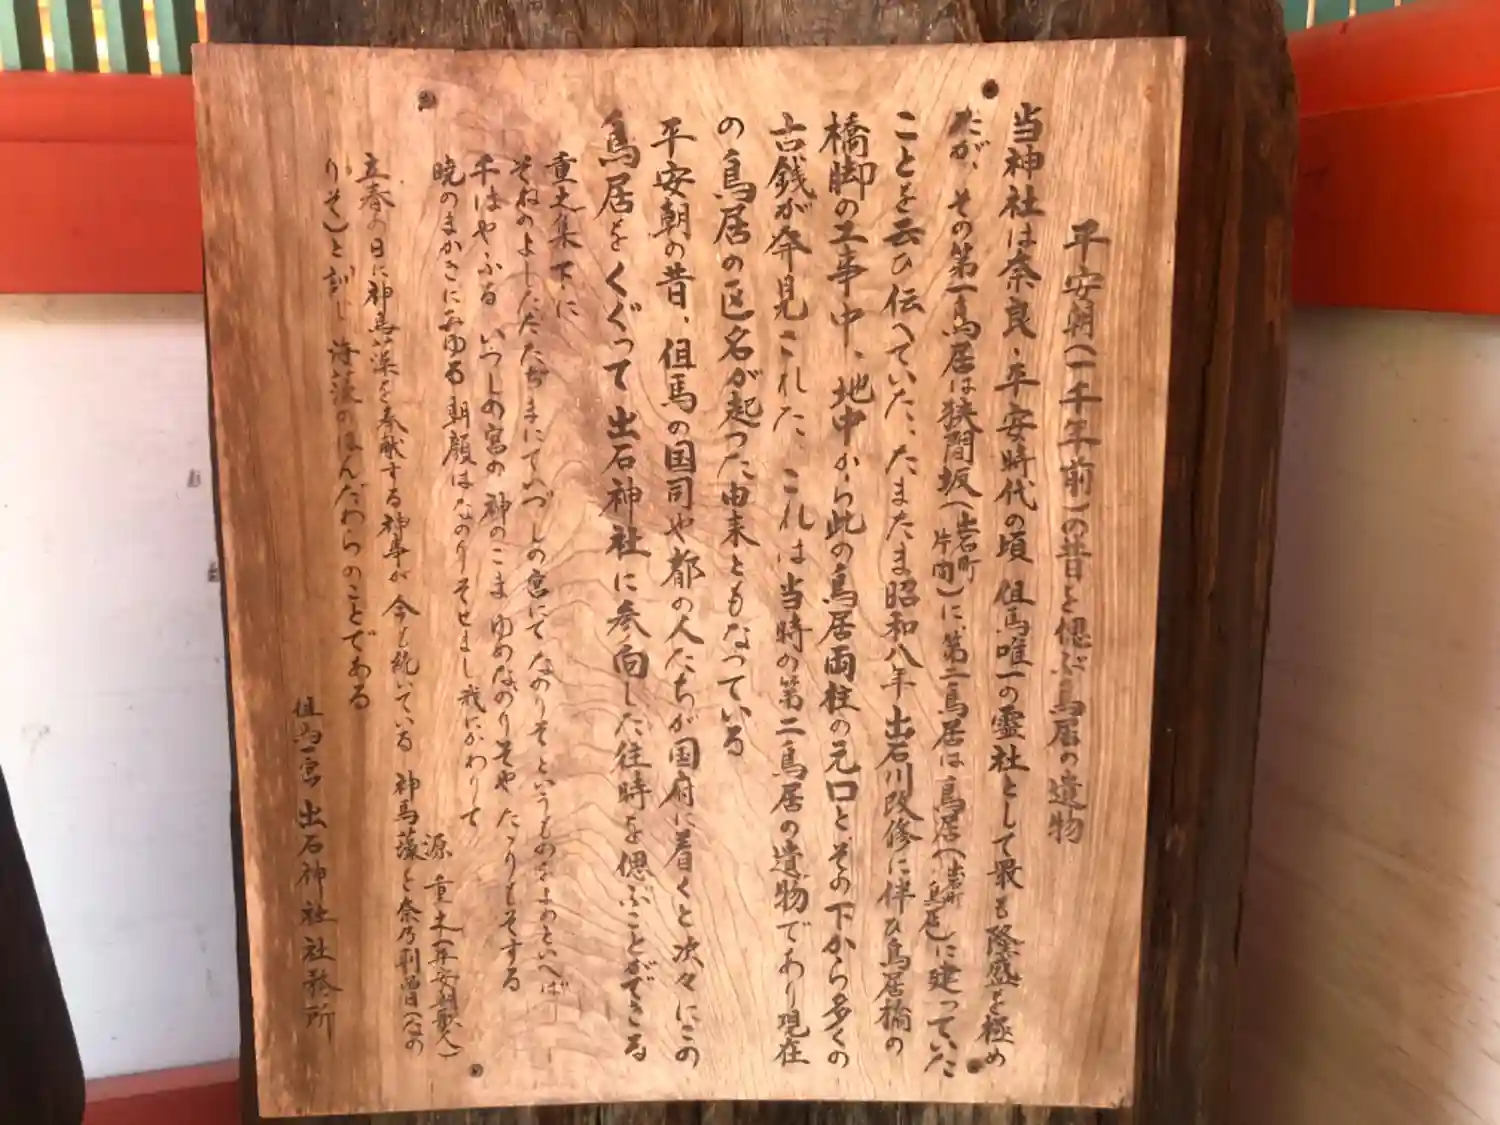 平安朝(一千年前)の昔を偲ぶ鳥居の遺物
当神社は奈良、平安時代の頃 但馬唯一の霊社として最も隆盛を極め
たが、その第一鳥居は狭間坂(出石町片間)に、第二鳥居は鳥居(出石町鳥居)に建っていた
ことを云ひ伝へていた、たまたま昭和八年出石川改修に伴ひ鳥居橋の
橋脚の工事中、地中から此の鳥居両柱の元口と、その下から多くの
古銭が発見された、これは当時の第二鳥居の遺物であり現在
の鳥居の区名が起った由来ともなっている
平安朝の昔、但馬の国司や都の人たちが国府に着くと次々にこの
鳥居をくぐって出石神社に参向した往時を偲ぶことができる
重之集 下に
そねのよしただたぢまにていづしの宮にてなのりそというものをよめといへば
千はやふる いづしの宮の 神のこま ゆめなのりそや たゝりもそする
暁のまかきにみゆる 朝顔は なのりそせまし 我にかわりて
源 重之(平安朝歌人)
立春の日に神馬藻を奉献する神事が 今も続いている 神馬藻を奈乃利曽(なの
りそ)と訓じ 海藻のほんだわらのことである
但馬一宮 出石神社社務所